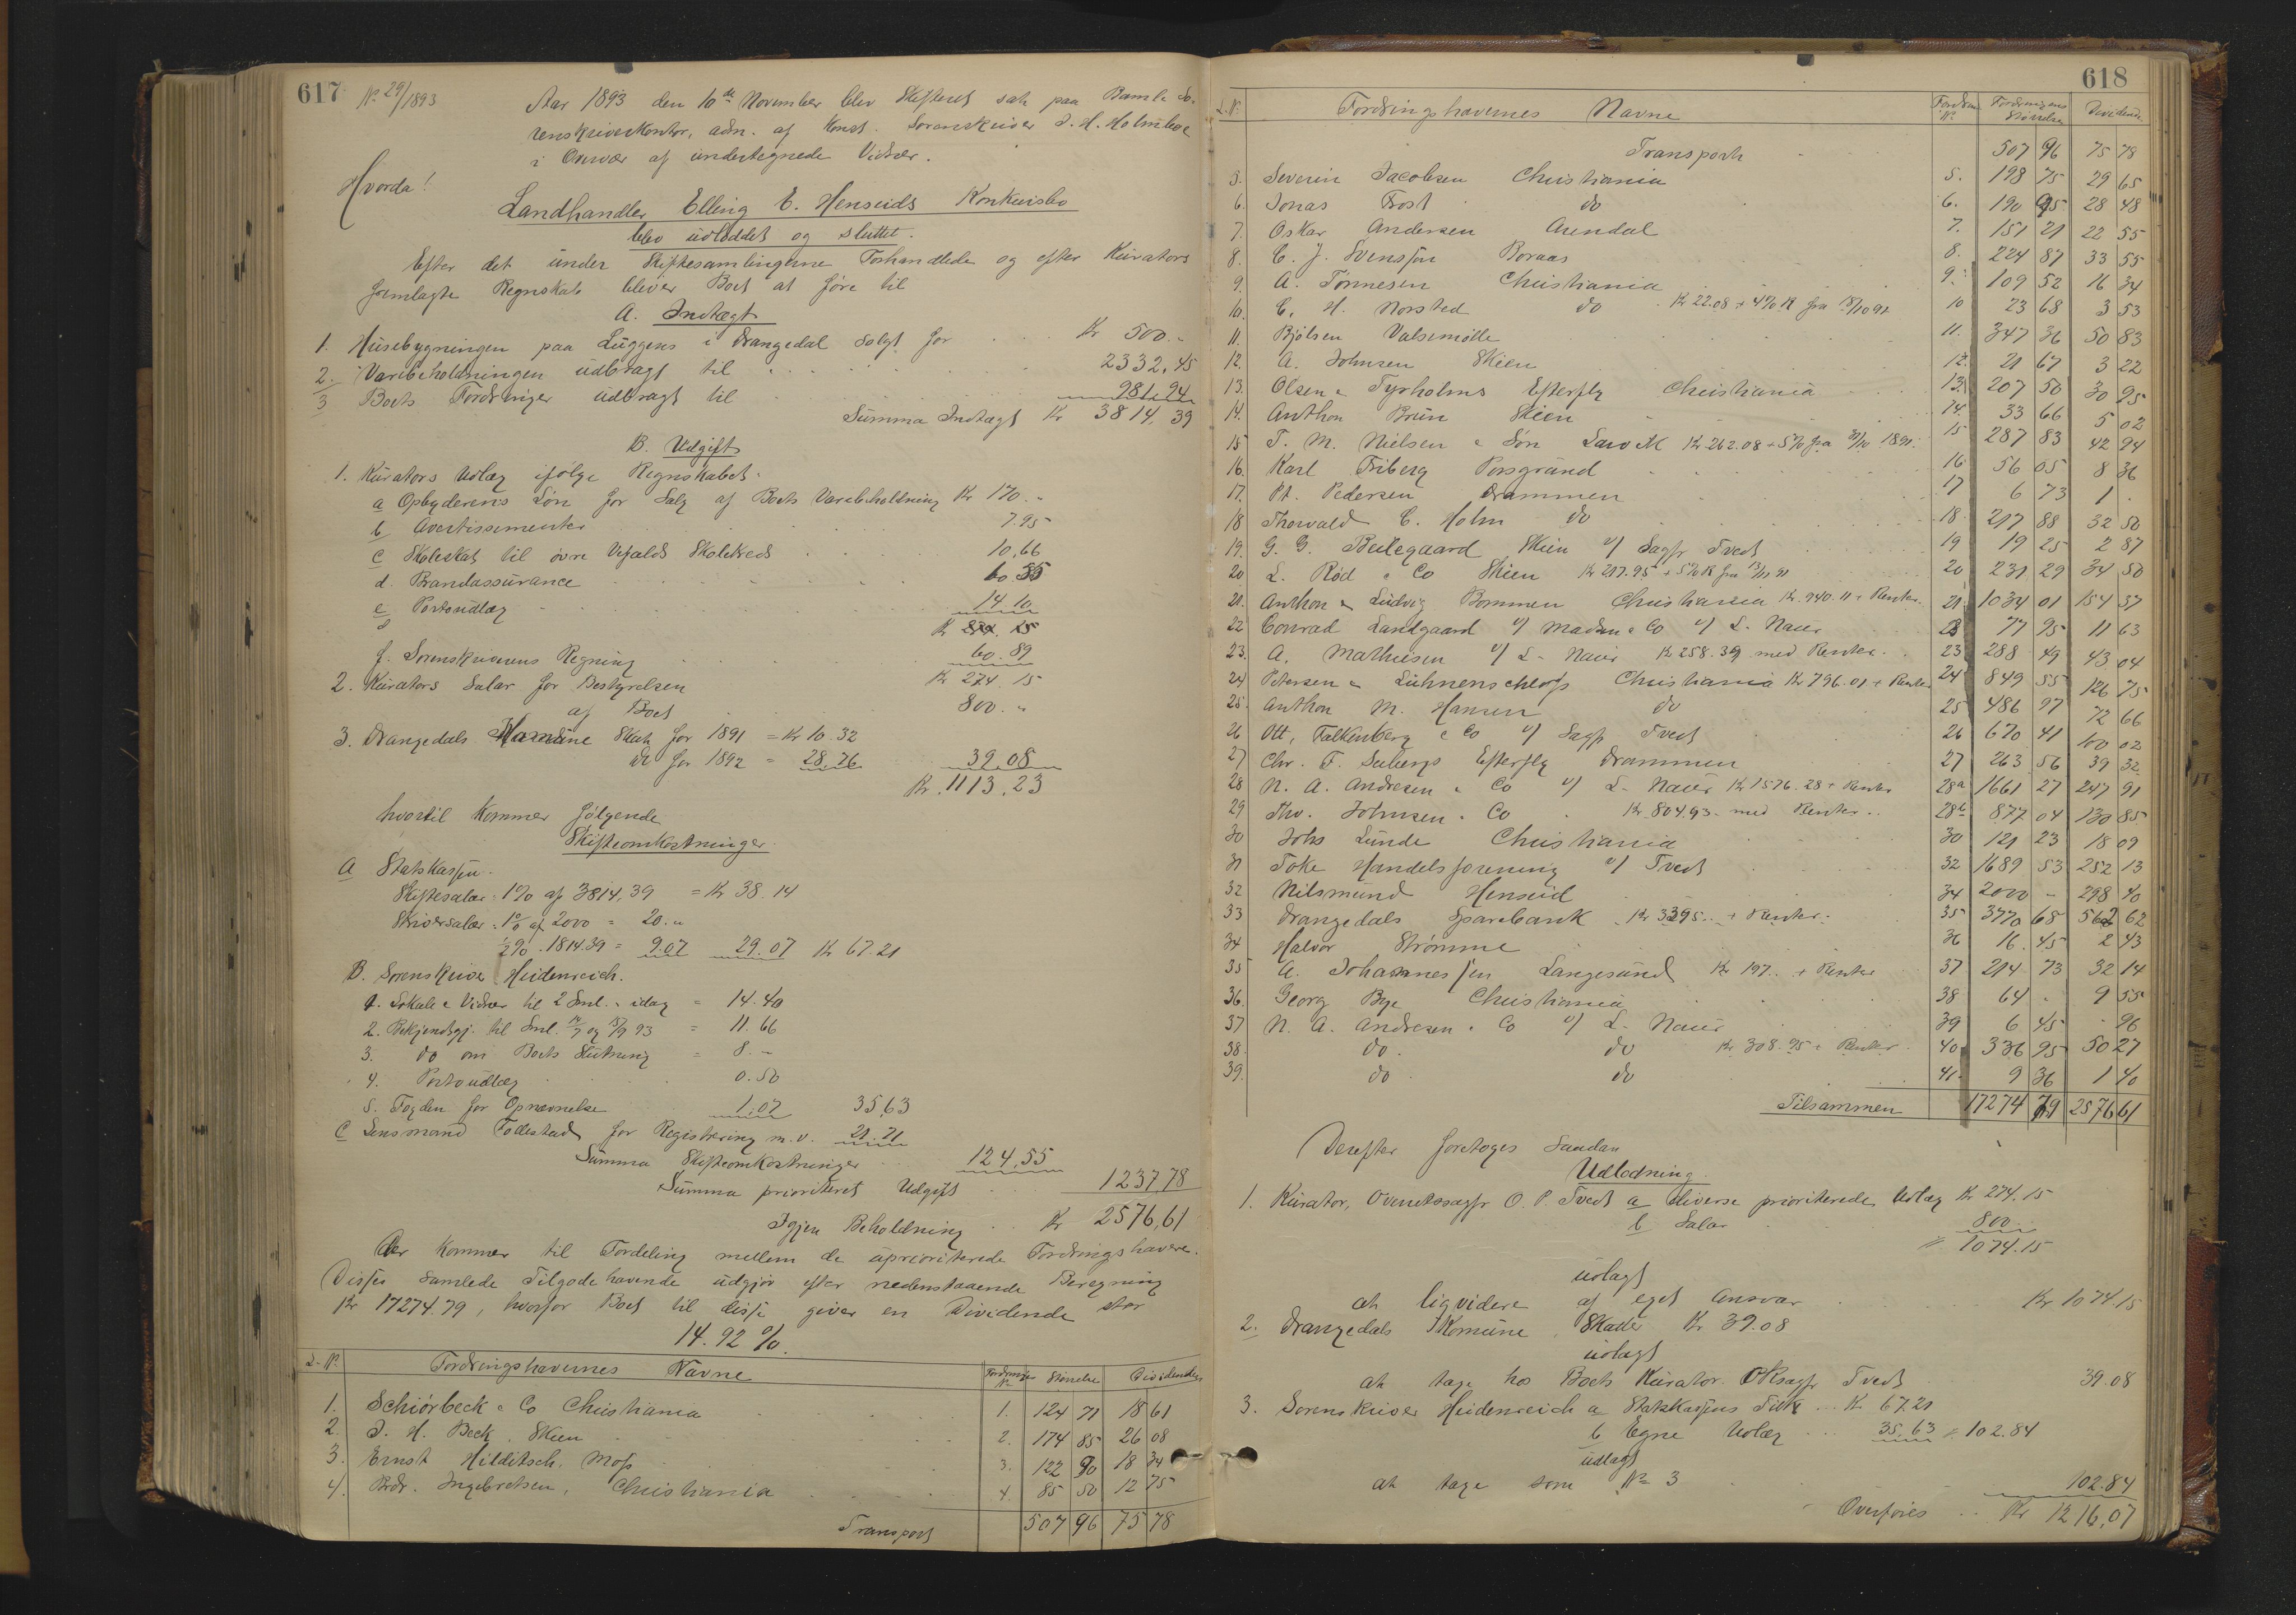 617 No 29/1893
Aar 1893 den 10de November blev Skifteret sat paa Bamle So-
renskriverkontor, adm. af Konst. Sorenskriver J. H. Holmboe
i Overvær af undertegnede Vidner.
Hvorda!
Landhandler Elling E. Henseids Konkursbo
blev udloddet og sluttet.
Efter det under Skiftesamlingerne Forhandlede og efter Kurators
fremlagte Regnskab bliver Boet at føre til
A. Indtægt
1. Husebygningen paa Luggens i Drangedal solgt for . . Kr 500.-
2. Varebeholdningen udbragt til . . . 2332.45
3 Boets Fordringer udbragt til . . . 981.94
Summa Indtægt Kr 3814,39
B. Udgift
1. Kurators Udlæg ifølge Regnskabet:
a Opbyderens Løn for Salg af Boets Varebeholdning Kr 170.-
b Avertissementer 7.95
c Skoleskat til øvre Skolekreds . . 10,66
d. Brandassurance . . 60.55
e Portoudlæg . . 14 10
f. Sorenskriverens Regning . . 60.89
Kr 274.15
2. Kurators Salar for Bestyrelsen
af Boet . . 800.-
3. Drangedals Komune Skat for 1891 = Kr 10.32
do for 1892 = 28.76 39.08
Kr. 1113.23
hvortil kommer følgende
Skifteomkostninger
A Statskassen.
Skiftesalær: 1% af 3814,39 = Kr 38.14
Skriversalær: 1% af 2000 = 20.-
½% . 1814.39 = 9.07 29.07 Kr 67.21
B. Sorenskriver Heidenreich.
1. Lokale & Vidner til 2 Saml. & idag = 14.40
2. Bekjendtgj. til Saml. 14/7 og 15/9 93 = 11.66
3. do om Boets Slutning = 8.-
4. Portoudlæg . . 0.50
5. Fogden for Opnævnelse 1.07 35,63
C Lensmand Tollestad for Registrering m.v. 21.71
Summa Skifteomkostninger 124,55
Summa prioriteret Udgift . . 1237.78
Igjen Beholdning . . Kr 2576,61
Der kommer til Fordeling mellem de uprioriterede Fordringshavere.
Disses samlede Tilgodehavende udgjør efter nedenstaaende Beregning
Kr 17274.79, hvorfor Boet til disse giver en Dividende stor
14.92 %.
L. No Fordringshavernes Navne Fordrings No Størrelse Dividende
1. Schiörbeck & Co Christiania 1. 124 71 18 61
2. J. H. Beck, Skien 2. 174 85 26 08
3. Ernst Hilditsch, Moss 3. 122 90 18 34
4. Brdr. Ingebretsen, Christiania 4. 85 50 12 75
Transport 507 96 75 78
618
L. No Fordringshavernes Navne Fordrings No Fordringens Størrelse Dividende
Transport 507 96 75 78
5. Severin Jacobsen Christiania 5. 198 75 29 65
6. Jonas Frost do 6. 190 95 28 48
7. Oskar Andersen Arendal 7. 151 21 22 55
8. C. J. Svensson Boraas 8. 224 87 33 55
9. A. Tønnesen Christiania 9. 109 52 16 34
10. C. H. Norsted do Kr 22.08 + 4% R fra 18/10 91 10 23 68 3 53
11. Bjølsen Valsemølle 11. 347 36 50 83
12. A. Johnsen Skien 12. 21 67 3 22
13. Olsen & Tyrholms Efterflg Christiania 13. 207 50 30 95
14. Anthon Brun Skien 14. 33 66 5 02
15 T. M. Nielsen & Søn Larvik Kr 262.08 + 5% fra 31/10 1891. 15 287 83 42 94
16. Karl Friberg Porsgrund 16 56 05 8 36
17. Pt. Pedersen Drammen 17 6 73 1 .
18 Thorvald C. Holm do 18. 217 88 32 50
19. G. G. Beilegaard Skien v/ Sagfr Tvedt 19 19 25 2 87
20 L. Rød & Co Skien Kr 217.95 + 5% R fra 13/11 91 20 231 29 34 50
21. Anthon & Ludvig Bommen Christiania Kr. 940.11 + Renter. 21. 1034 01 154 37
22 Conrad Landgaard v/ Madsen & Co v/ L. Nauer 77 95 11 63
23. A. Mathiesen v/ L. Nauer Kr 258.39 med Renter. 23 288 49 43 04
24 Petersen & Lühnenschloss Christiania Kr 796.01 + Renter 24 849 55 126 75
25. Anthon M. Hansen do 25 486 97 72 66
26 Ott, Falkenberg & Co v/ Sagfr Tvedt 26 670 41 100 02
27 Chr. F. Seebergs Efterflg Drammen 27 263 56 39 32
28 N. A. Andresen & Co v/ L. Nauer Kr 1576.28 + Renter 28a 1661 27 247 91
29 Thv. Johnsen & Co Kr. 804.93 med Renter . . 28b 877 04 130 85
30 Johs Lunde Christiania 30 121 23 18 09
31 Toke Handelsforening v/ Tvedt 32 1689 53 252 13
32 Nilsmund Henseid 34 2000 - 298 40
33 Drangedals Sparebank Kr 3395.- + Renter. 35 3770 68 562 62
34 Halvor Strømme 36 16 45 2 43
35 A. Johannessen Langesund Kr 197.- + Renter 37 214 73 32 14
36. Georg Bye Christiania 38 64 . 9 55
37 N. A. Andresen & Co v/ L. Nauer 39 6 45 . 96
38. do. do Kr 308.95 + Renter. 40 336 95 50 27
39. do do 41. 9 36 1 40
Tilsammen 17274 79 2576 61
Derefter foretoges saadan
Udlodning
1. Kurator, Overretssagfr O. P. Tvedt a diverse prioriterede Udlæg Kr 274.15
b Salar 800.-
1074.15
udlagt
at liqvidere af eget Ansvar Kr 1074.15
2. Drangedals Komune, Skatter Kr 39.08
udlagt
at tage hos Boets Kurator ORsagfr Tvedt 39.08
3. Sorenskriver Heidenreich a Statskassens Tilk . . Kr 67.21
b Egne Udlæg . . . 35.63 = 102.84
udlagt
at tage som No 3 102.84
Overføres . . Kr 1216,07